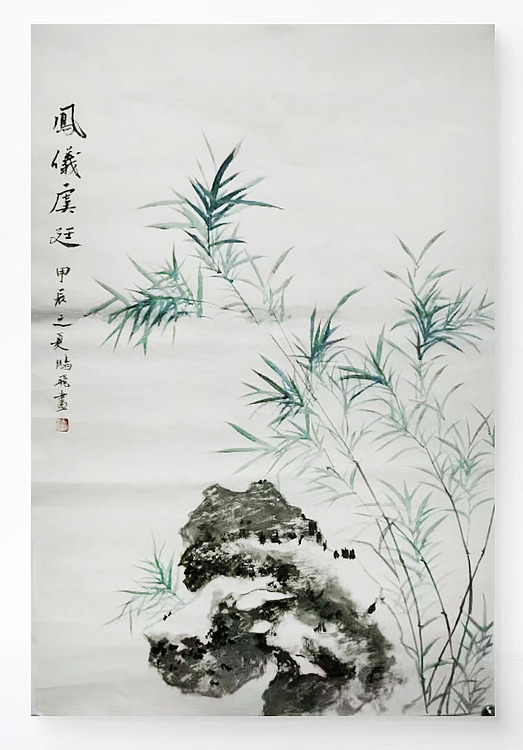 鳳儀虞廷
甲辰之夏鵬飛畫